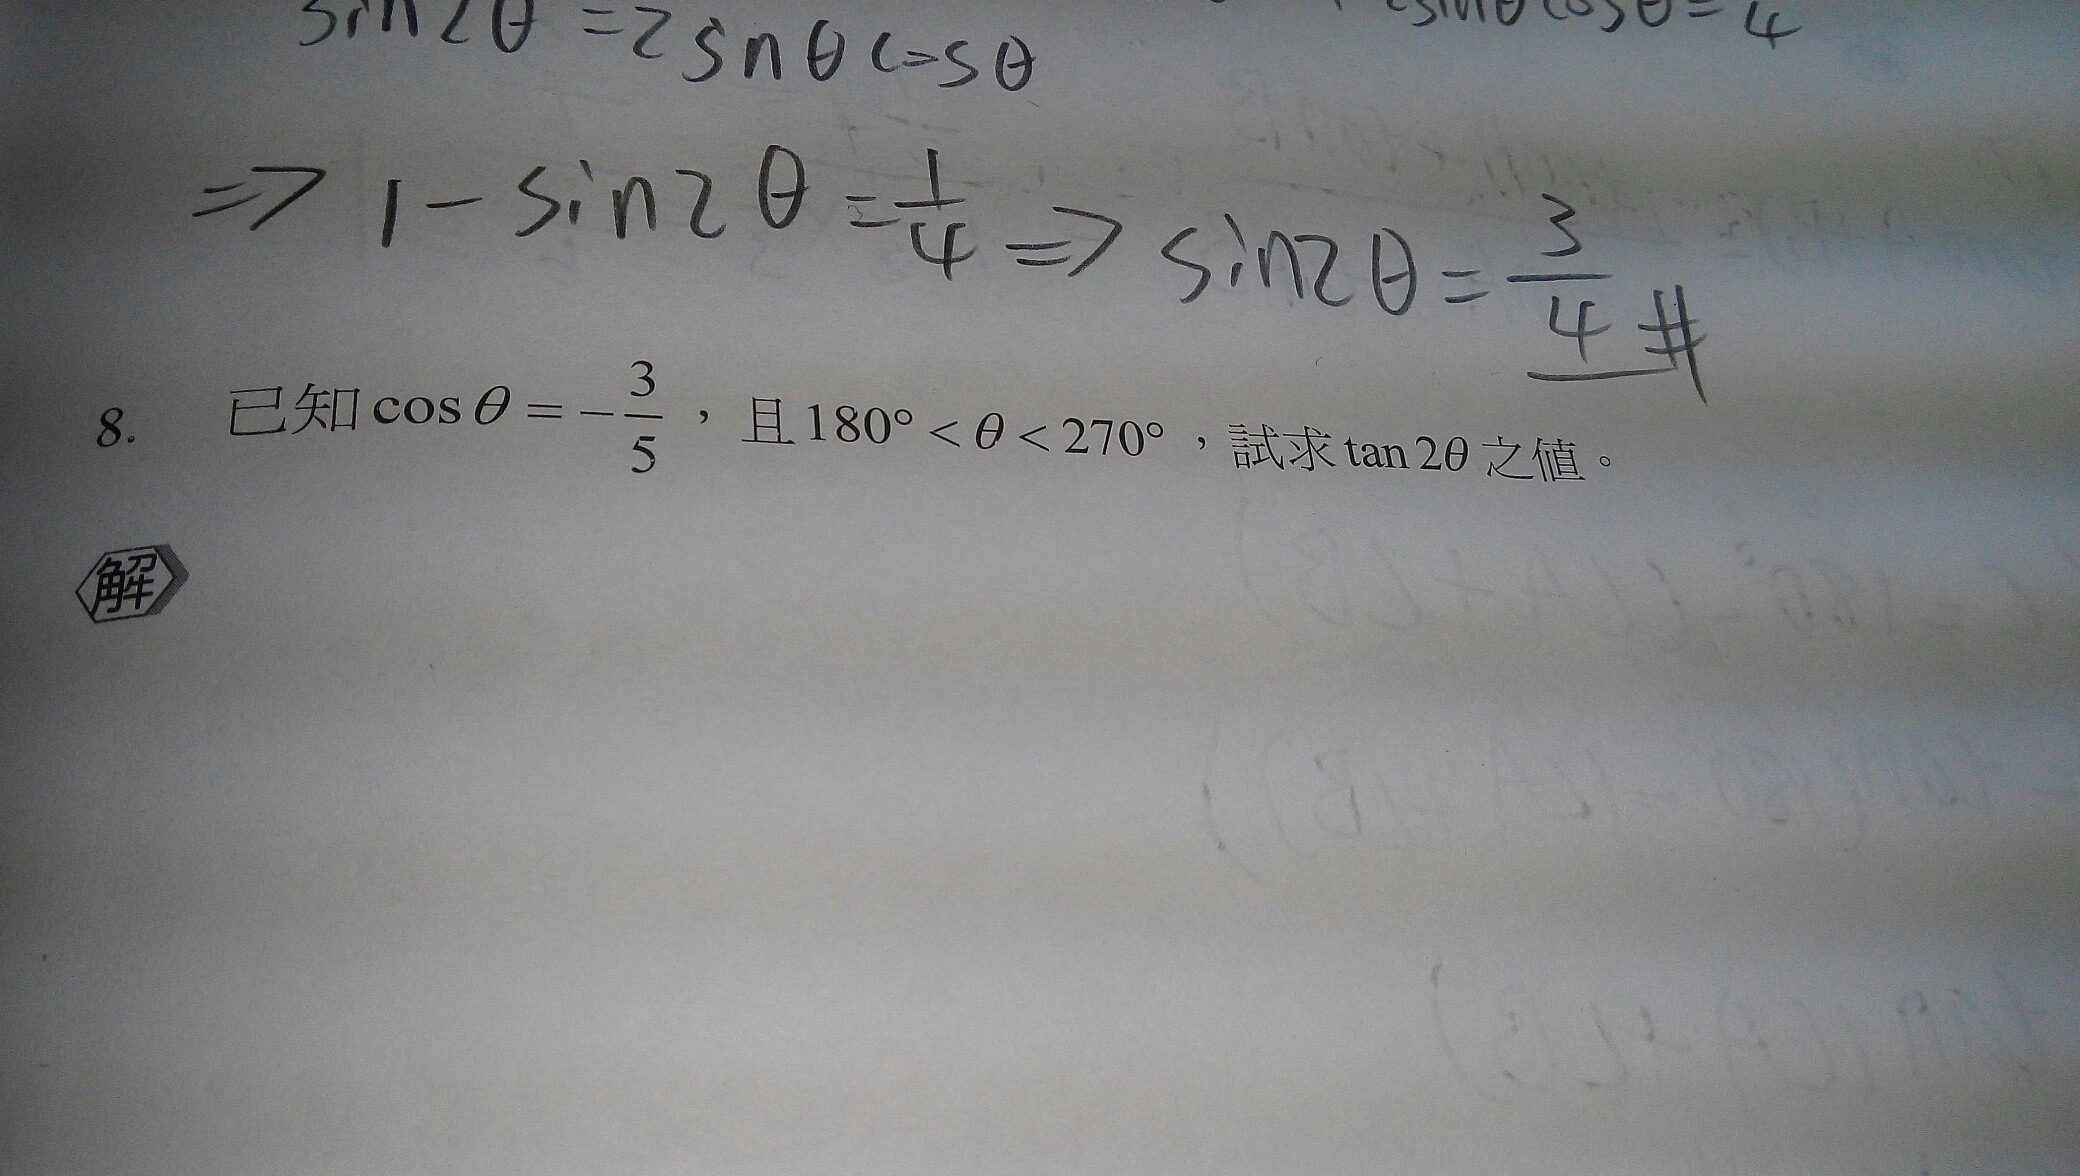 sin2θ =2sinθcosθ
2sinθcosθ = 4
⇒ 1-sin2θ = 1/4 ⇒ sin2θ = 3/4 #
8. 已知 cos θ = -3/5，且180° < θ < 270°，試求 tan 2θ 之值。
解